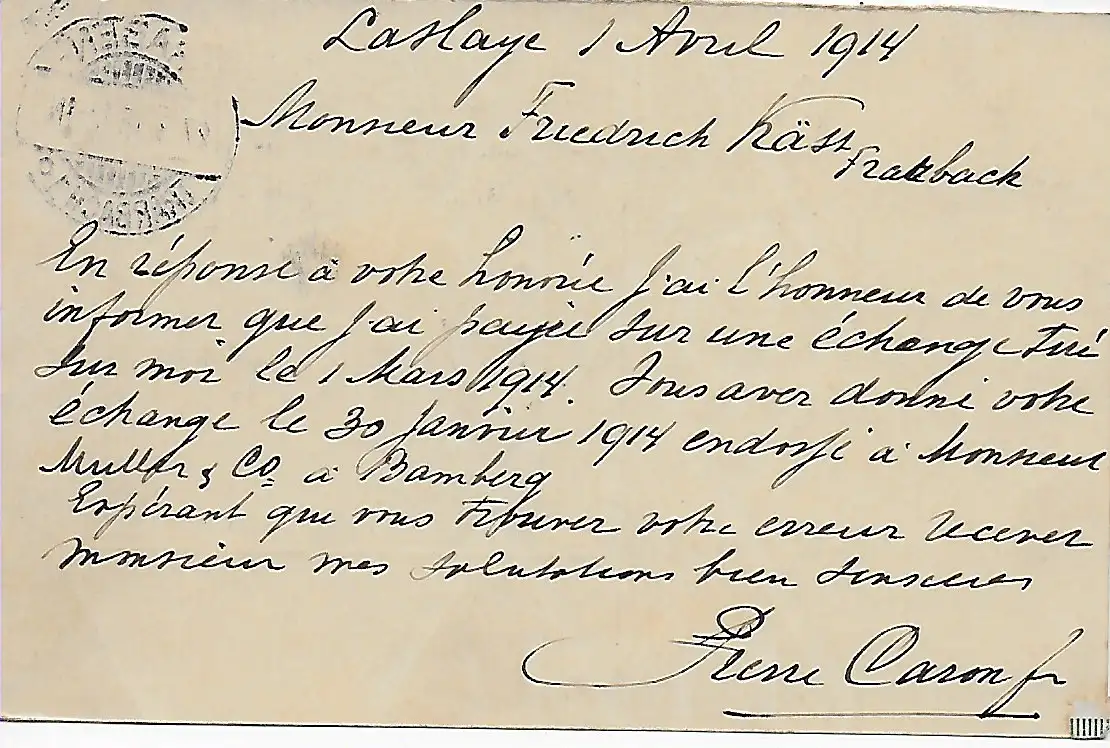 LaHaye 1 Avril 1914
Monsieur Friedrich Käst
Fratzback
En réponse à votre honorée j'ai l'honneur de vous
informer que j'ai payée sur une échange tiré
sur moi le 1 Mars 1914. Vous aver donné votre
échange le 30 Janvier 1914 endossé à Monsieur
Muller & Co. à Bamberg
Espérant que vous trouver votre erreur recever
monsieur mes salutations bien sinceres
Pierre Caron fr